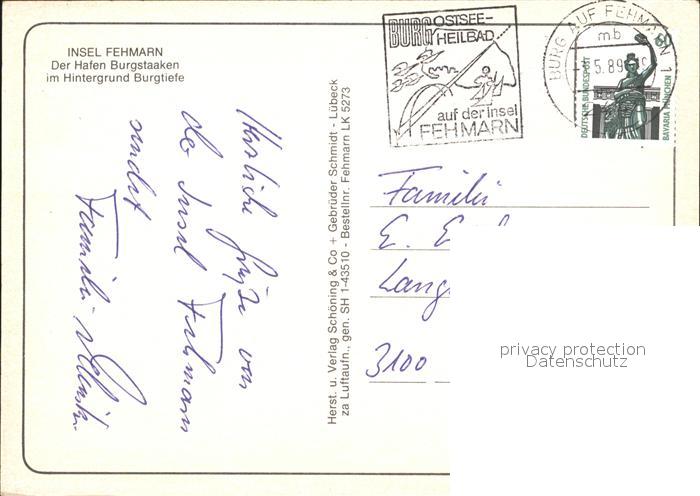 INSEL FEHMARN
Der Hafen Burgstaaken
im Hintergrund Burgtiefe
Herzliche Grüße von
der Insel Fehmarn
sendet
Familie
Herst. u. Verlag Schöning & Co + Gebrüder Schmidt - Lübeck
za Luftaufn., gen. SH 1-43510 - Bestellnr. Fehmarn LK 5273
BURG OSTSEE-
HEILBAD
auf der Insel
FEHMARN
BURG AUF FEHMARN 1
mb
5.89
60
DEUTSCHE BUNDESPOST
BAVARIA MÜNCHEN
Familie
E. E
Lang
3100
privacy protection
Datenschutz